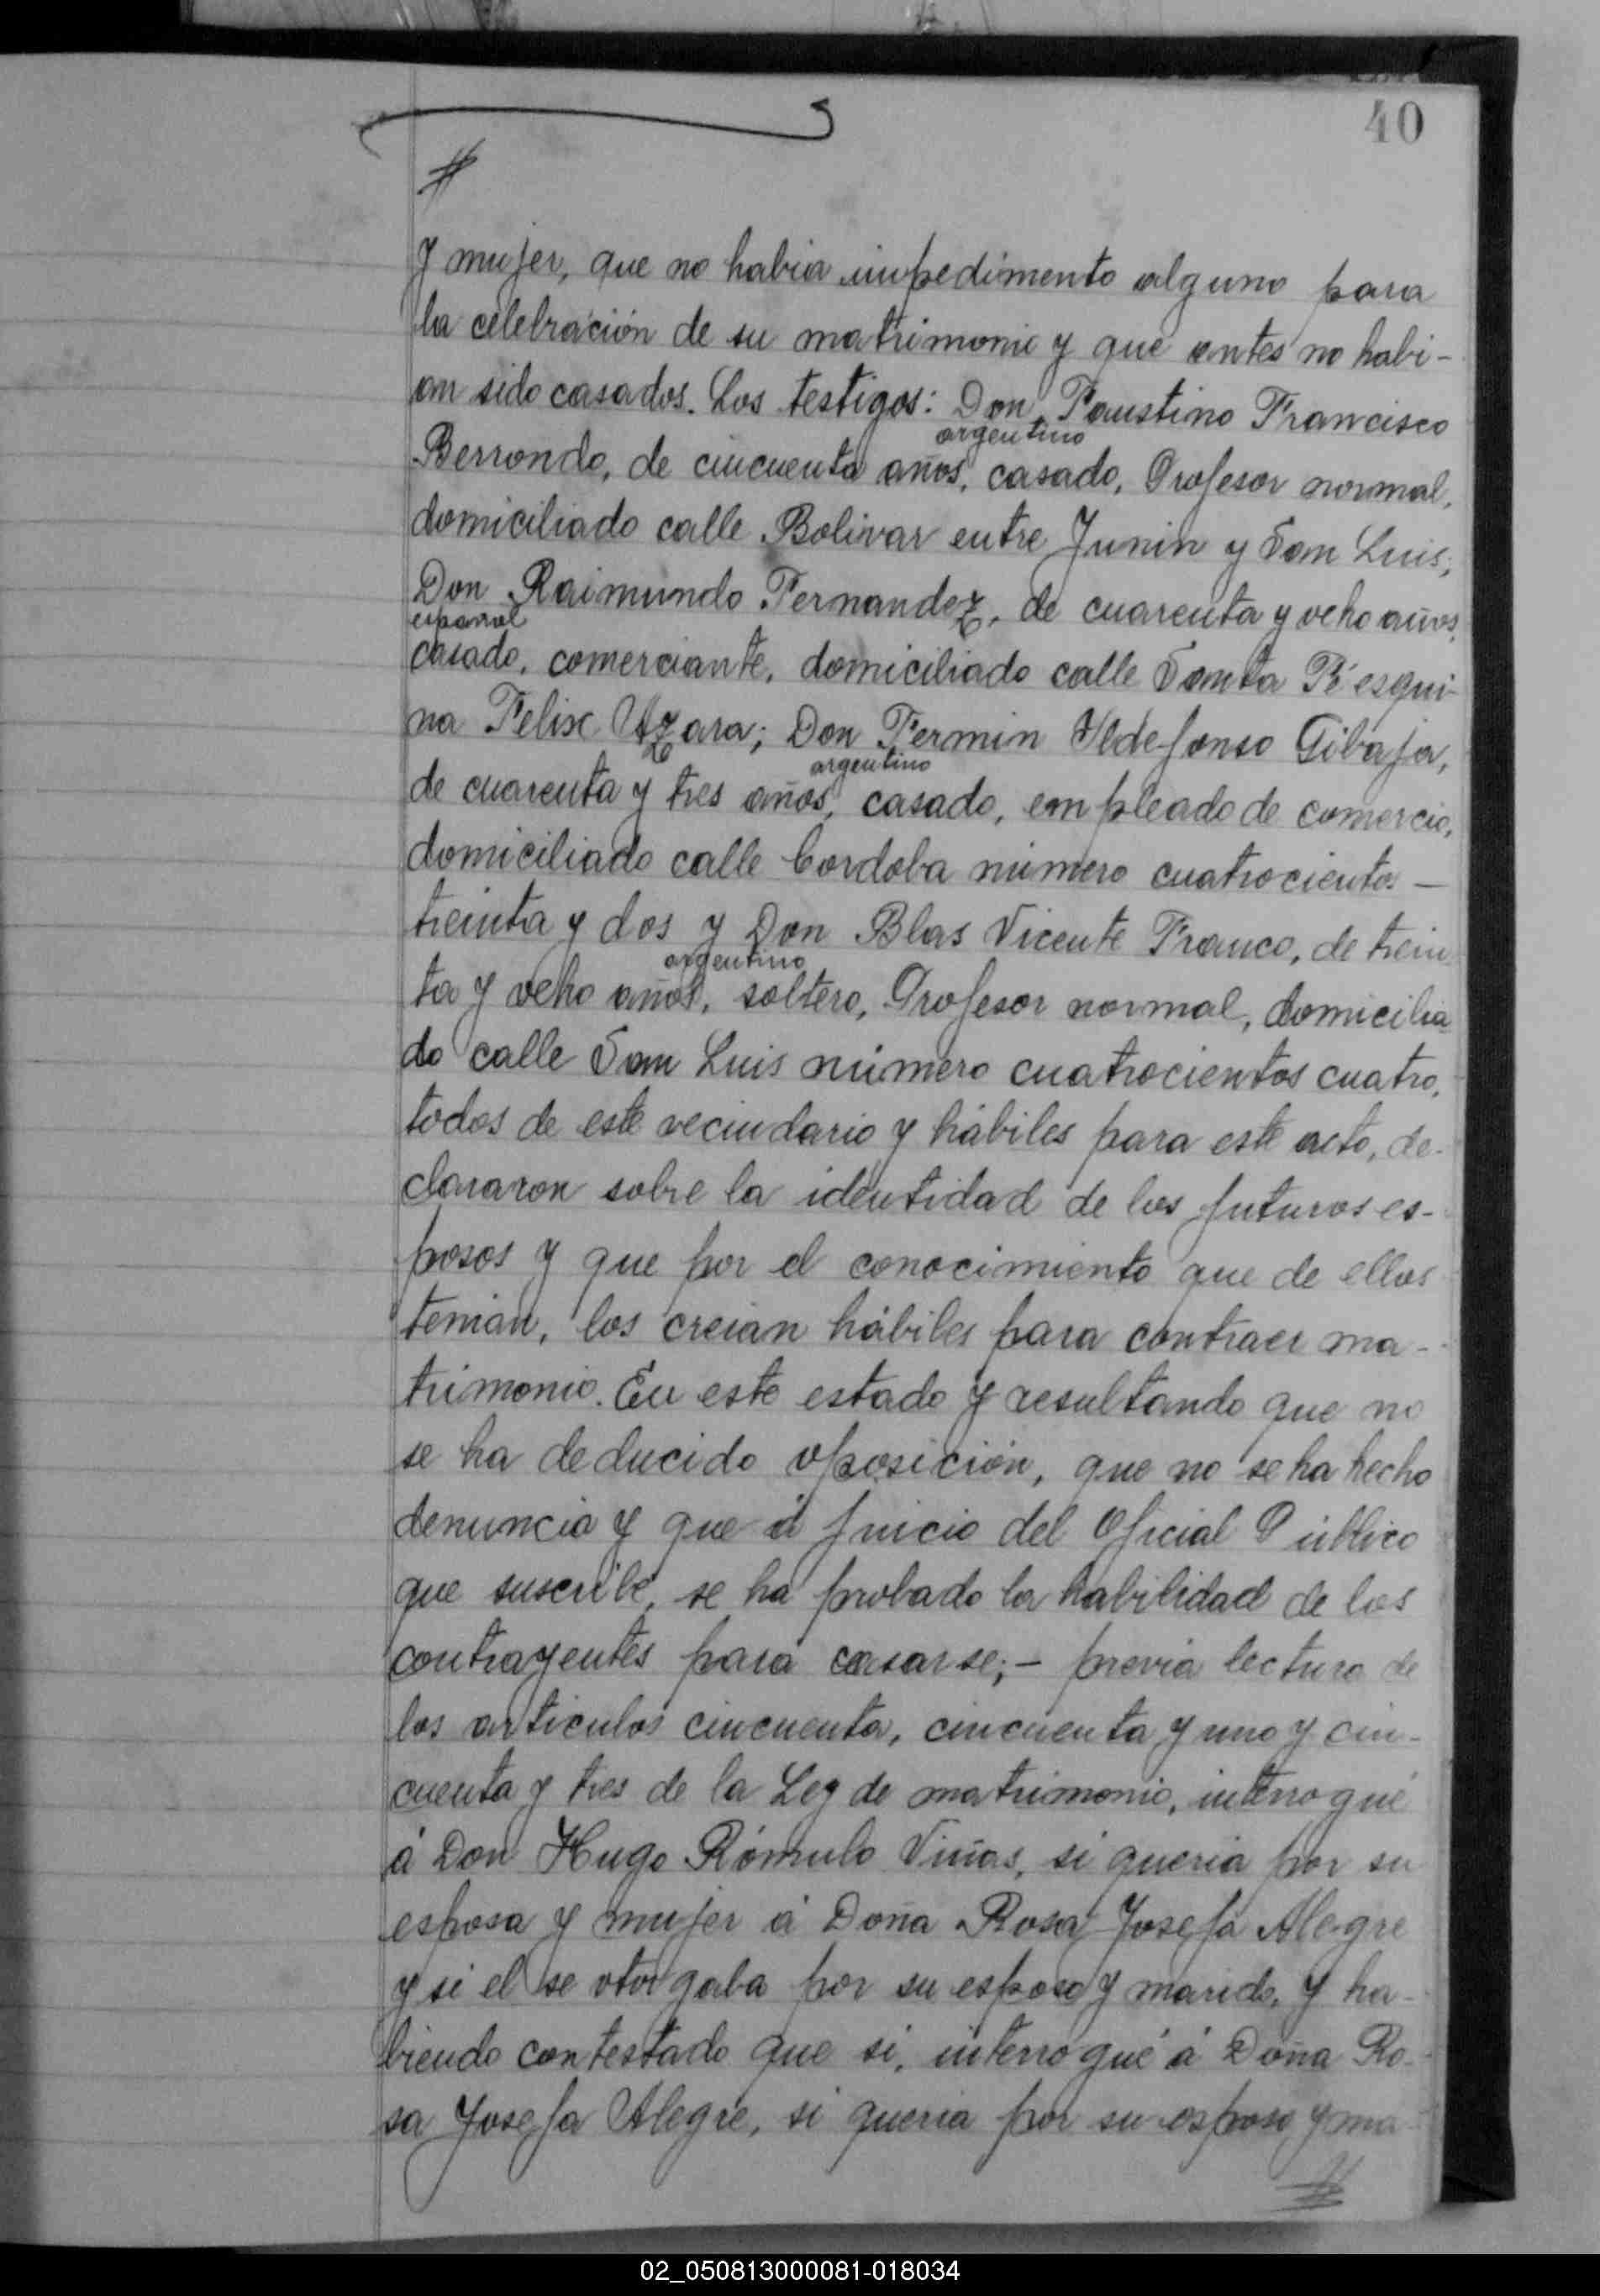 40
#
y mujer, que no habia impedimento alguno para
la celebración de su matrimonio y que antes no habi-
an sido casados. Los testigos: Don Faustino Francisco
argentino
Berrondo, de cincuenta años, casado, Profesor normal,
domiciliado calle Bolivar entre Junin y San Luis;
Don Raimundo Fernandez, de cuarenta y ocho años,
español
casado, comerciante, domiciliado calle Santa Fé esqui-
na Felix Azara; Don Fermin Ildefonso Gibaja,
argentino
de cuarenta y tres años, casado, empleado de comercio,
domiciliado calle Cordoba número cuatrocientos —
treinta y dos y Don Blas Vicente Franco, de trein
argentino
ta y ocho años, soltero, Profesor normal, domicilia
do calle San Luis número cuatrocientos cuatro,
todos de este vecindario y hábiles para este acto, de-
clararon sobre la identidad de los futuros es-
posos y que por el conocimiento que de ellos
tenian, los creian hábiles para contraer ma-
trimonio. En este estado y resultando que no
se ha deducido oposición, que no se ha hecho
denuncia y que á juicio del Oficial Público
que suscribe, se ha probado la habilidad de los
contrayentes para casarse; - previa lectura de
los articulos cincuenta, cincuenta y uno y cin-
cuenta y tres de la Ley de matrimonio, interrogué
á Don Hugo Rómulo Viñas, si queria por su
esposa y mujer á Doña Rosa Josefa Alegre
y si el se otorgaba por su esposo y marido, y ha-
biendo contestado que si, interrogué á Doña Ro-
sa Josefa Alegre, si queria por su esposo y ma-
#
02_050813000081-018034